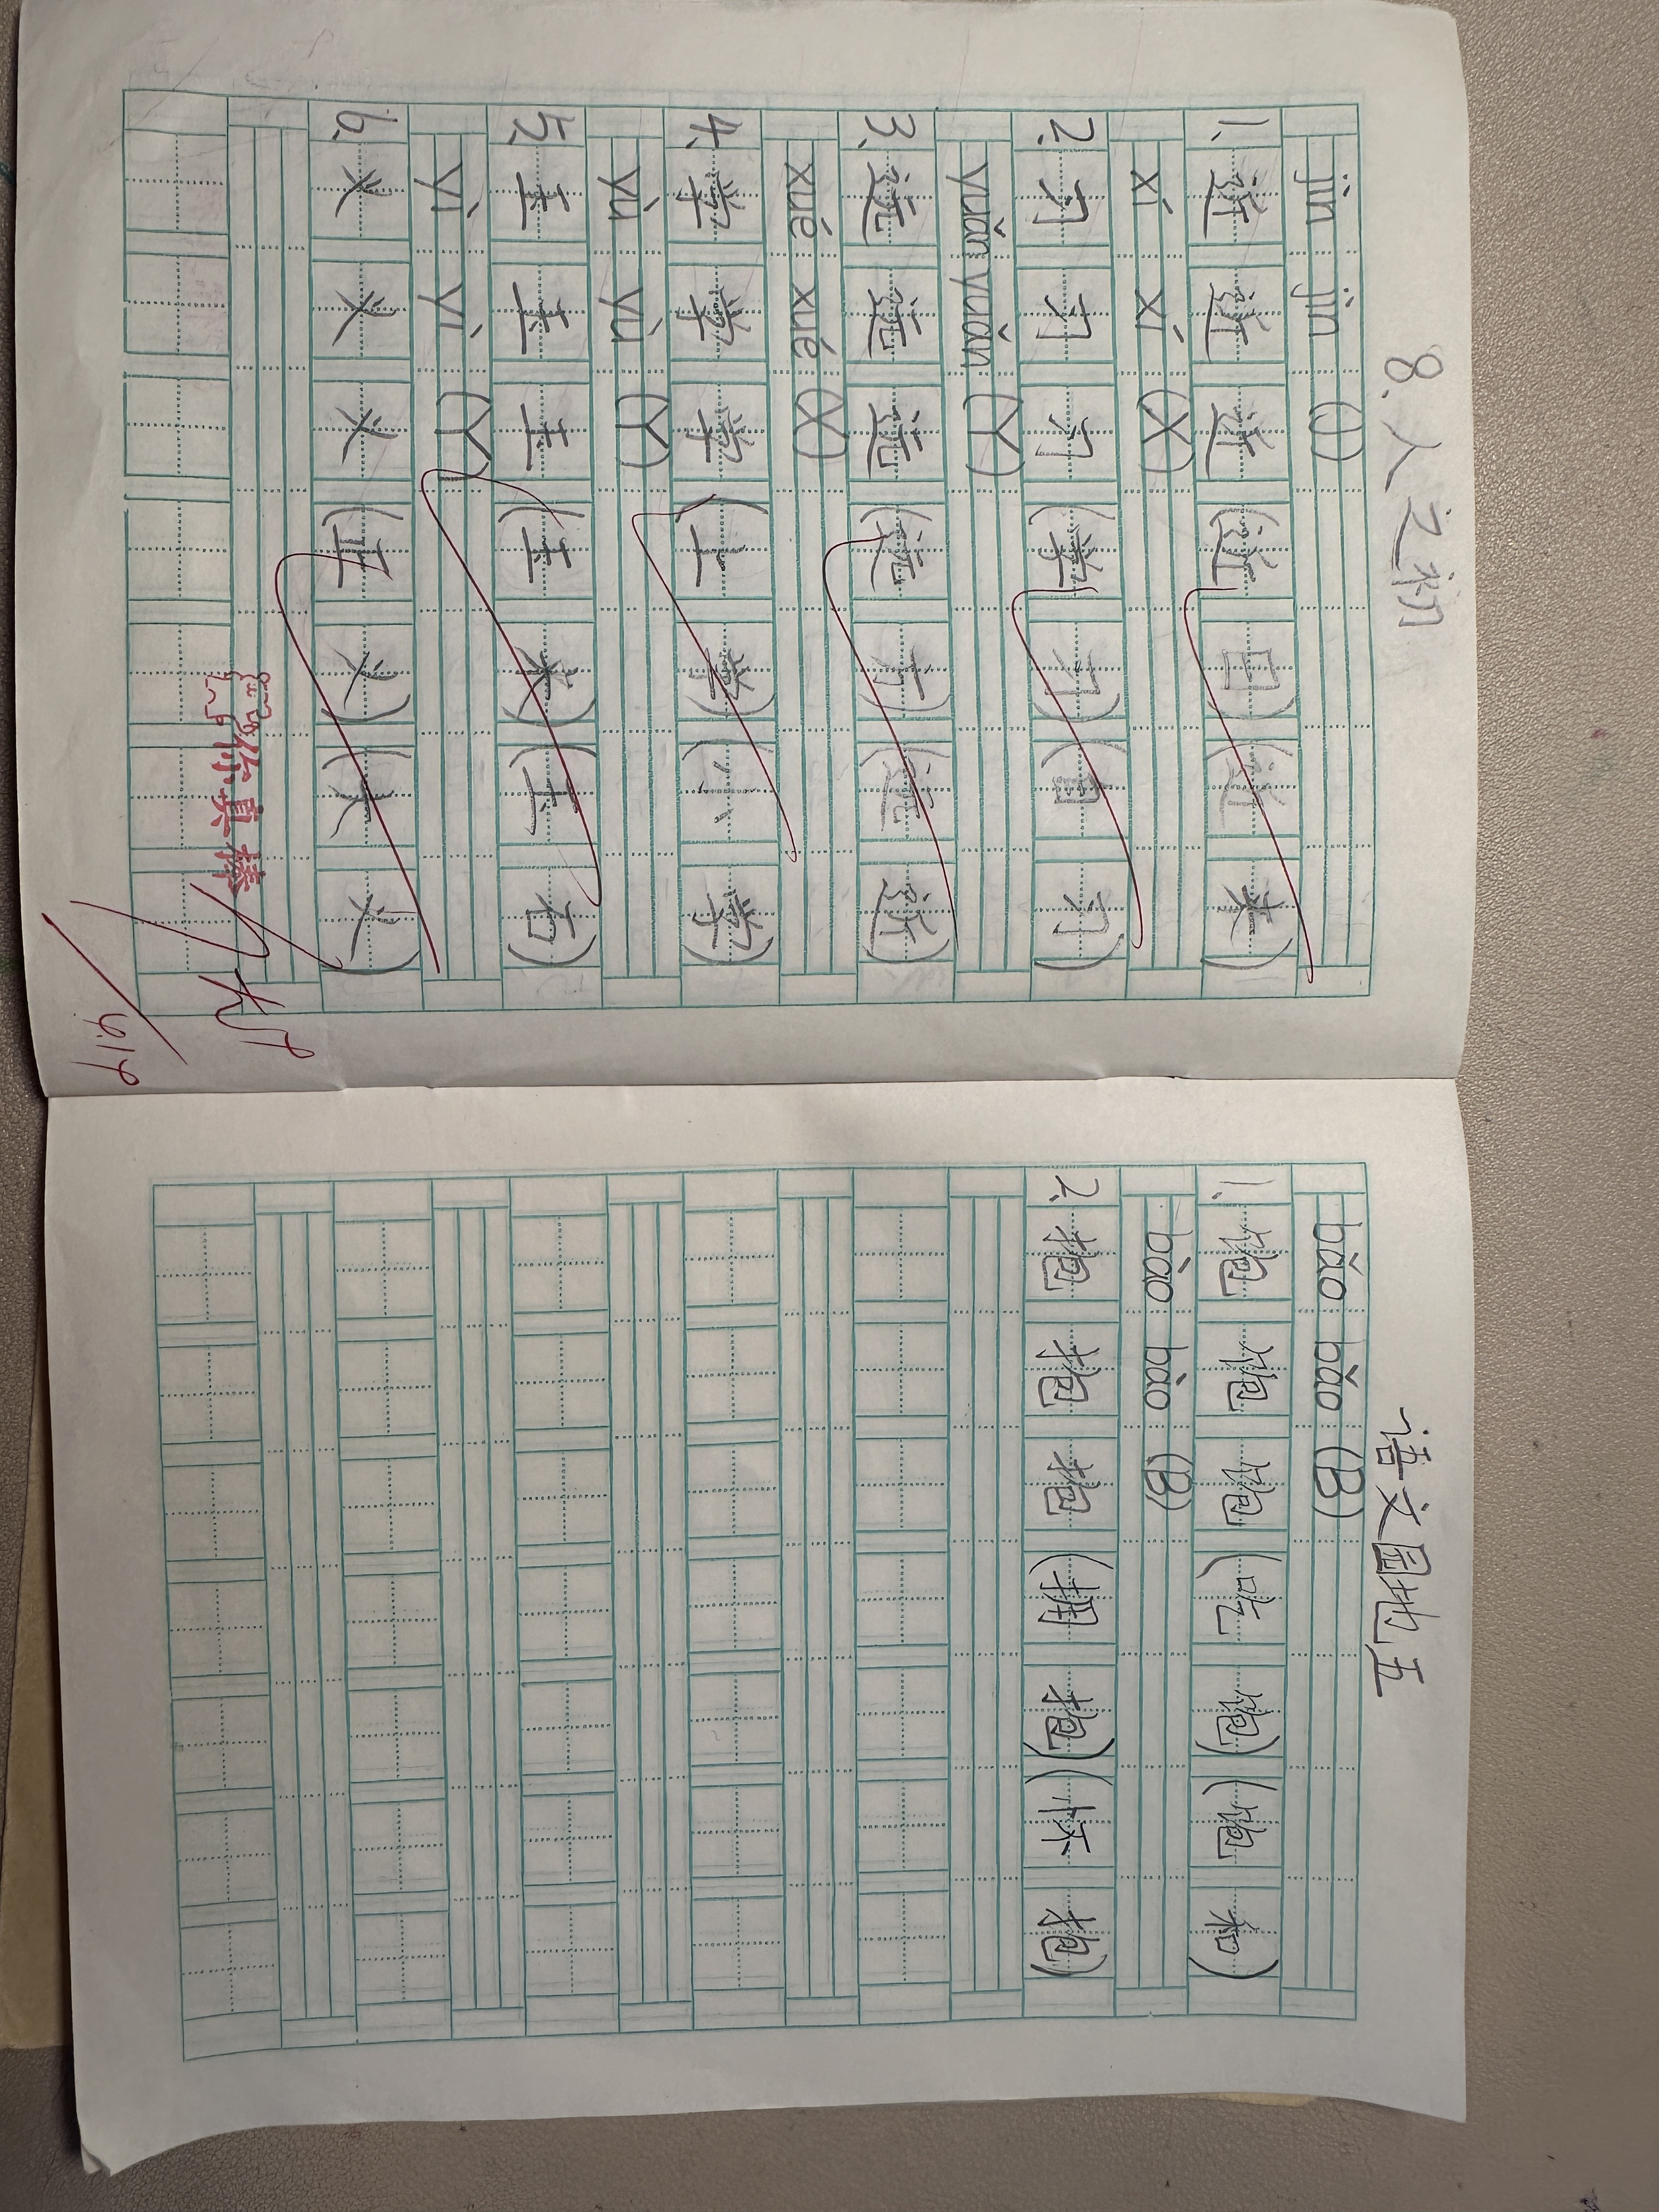 8.人之初
jìn jìn (J)
1.近近近(近日)(近来)
xí xí (X)
2.习习习(学习)(自习)
yuǎn yuǎn (Y)
3.远远远(远方)(远近)
xué xué (X)
4.学学学(上学)(小学)
yù yù (Y)
5.玉玉玉(玉米)(玉石)
yì yì (Y)
6.义义义(正义)(大义)
你真棒
优
4.14
语文园地五
bǎo bǎo (B)
1.饱饱饱(吃饱)(饱和)
bào bào (B)
2.抱抱抱(拥抱)(怀抱)